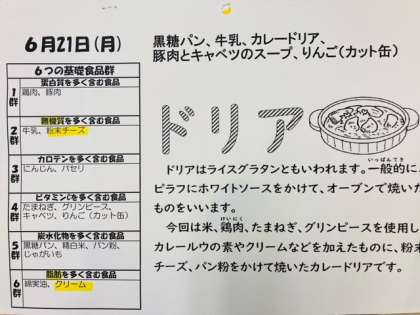 6月21日(月)
黒糖パン、牛乳、カレードリア、
豚肉とキャベツのスープ、りんご(カット缶)
6つの基礎食品群
蛋白質を多く含む食品
1群
鶏肉、豚肉
無機質を多く含む食品
2群
牛乳、粉末チーズ
カロテンを多く含む食品
3群
にんじん、パセリ
ビタミンCを多く含む食品
4群
たまねぎ、グリンピース、
キャベツ、りんご(カット缶)
炭水化物を多く含む食品
5群
黒糖パン、精白米、パン粉、
じゃがいち
脂肪を多く含む食品
6群
綿実油、クリーム
ドリア
ドリアはライスグラタンともいわれます。一般的に
いっぱんてき
ピラフにホワイトソースをかけて、オーブンで焼いた
ものをいいます。
けいにく
今回は米、鶏肉、たまねぎ、グリンピースを使用し
カレールウの素やクリームなどを加えたものに、粉末
チーズ、パン粉をかけて焼いたカレードリアです。